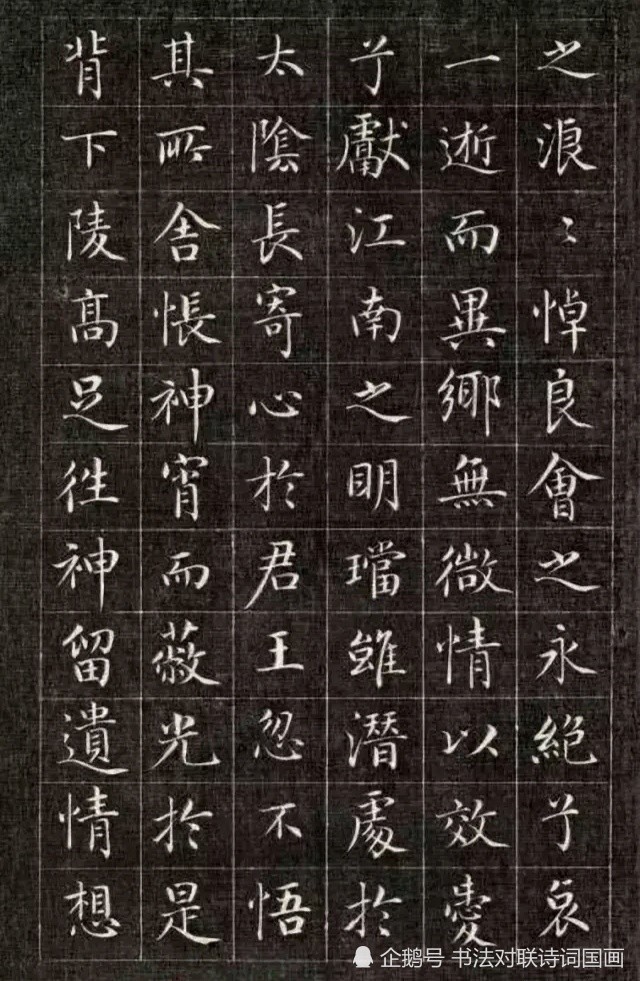 之浪〻悼良會之永絕兮哀
一逝而異鄉無微情以效愛
兮獻江南之明璫雖潛處於
太陰長寄心於君王忽不悟
其所舍悵神宵而蔽光於是
背下陵高足往神留遺情想
企鹅号 书法对联诗词国画